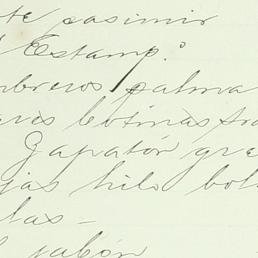 te casimir
Estamp.º
mbreros palma
botinas fra
Zapatón gre
jas hilo bol
las –
jabón